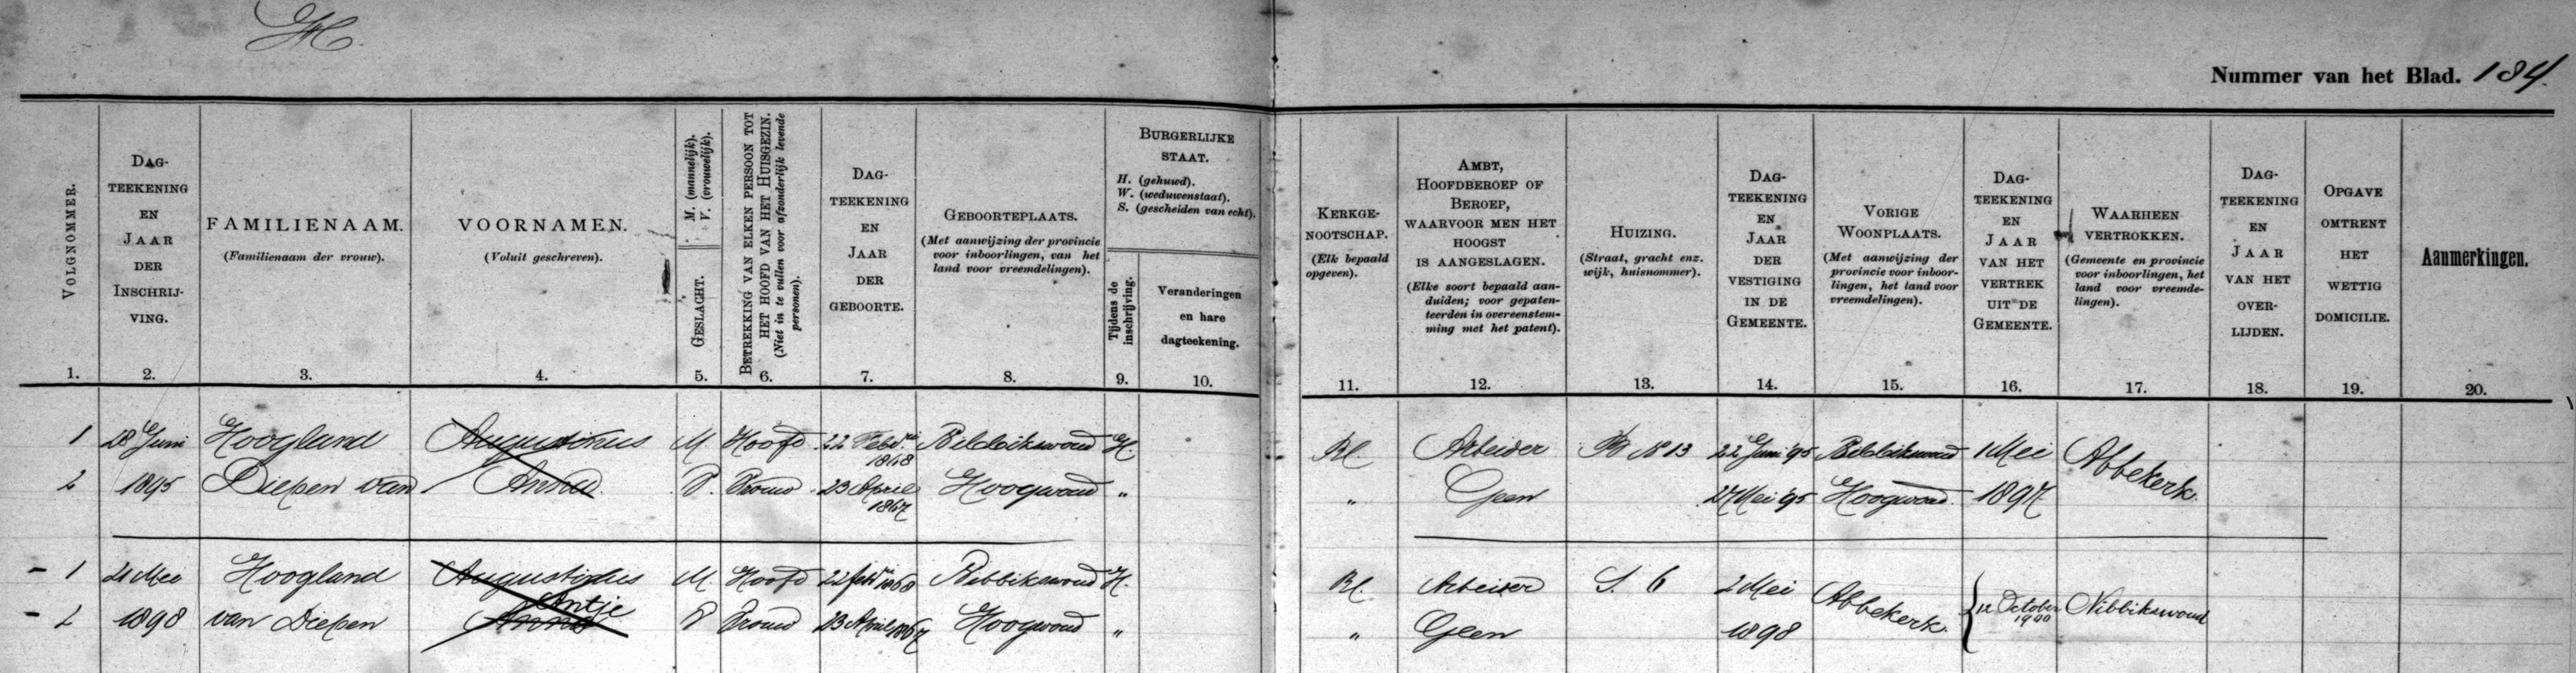 H.
Nummer van het Blad. 184.
VOLGNOMMER.
DAG-
TEEKENING
EN
JAAR
DER
INSCHRIJ-
VING.
FAMILIENAAM.
(Familienaam der vrouw).
VOORNAMEN.
(Voluit geschreven).
M. (mannelijk).
V. (vrouwelijk).
GESLACHT.
BETREKKING VAN ELKEN PERSOON TOT
HET HOOFD VAN HET HUISGEZIN.
(Niet in te vullen voor afzonderlijk levende
personen).
DAG-
TEEKENING
EN
JAAR
DER
GEBOORTE.
GEBOORTEPLAATS.
(Met aanwijzing der provincie
voor inboorlingen, van het
land voor vreemdelingen).
BURGERLIJKE
STAAT.
H. (gehuwd).
W. (weduwenstaat).
S. (gescheiden van echt).
Tijdens de
inschrijving.
Veranderingen
en hare
dagteekening.
KERKGE-
NOOTSCHAP.
(Elk bepaald
opgeven).
AMBT,
HOOFDBEROEP OF
BEROEP,
WAARVOOR MEN HET
HOOGST
IS AANGESLAGEN.
(Elke soort bepaald aan-
duiden; voor gepaten-
teerden in overeenstem-
ming met het patent).
HUIZING.
(Straat, gracht enz.
wijk, huisnommer).
DAG-
TEEKENING
EN
JAAR
DER
VESTIGING
IN DE
GEMEENTE.
VORIGE
WOONPLAATS.
(Met aanwijzing der
provincie voor inboor-
lingen, het land voor
vreemdelingen).
DAG-
TEEKENING
EN
JAAR
VAN HET
VERTREK
UIT DE
GEMEENTE.
WAARHEEN
VERTROKKEN.
(Gemeente en provincie
voor inboorlingen, het
land voor vreemde-
lingen).
DAG-
TEEKENING
EN
JAAR
VAN HET
OVER-
LIJDEN.
OPGAVE
OMTRENT
HET
WETTIG
DOMICILIE.
Aanmerkingen.
1. 2. 3. 4. 5. 6. 7. 8. 9. 10. 11. 12. 13. 14. 15. 16. 17. 18. 19. 20.
1 28 Juni Hoogland Augustinus M Hoofd 22 Febr. 1868 H. Rl. Arbeider N 13 22 Juni '95 1 Mei Abbekerk.
2 1895 Diepen van Anna V. Vrouw 23 April 1867 Hoogwoud " " Geen 27 Mei '95 Hoogwoud 1897
- 1 21 Mei Hoogland Augustinus M Hoofd 22 febr 1868 H. Rl. Arbeider S. 6 2 Mei Abbekerk. { 12 October 1900 Nibbikswoud
Antje
- 2 1898 van Diepen Anna V Vrouw 23 April 1867 Hoogwoud " " Geen 1898